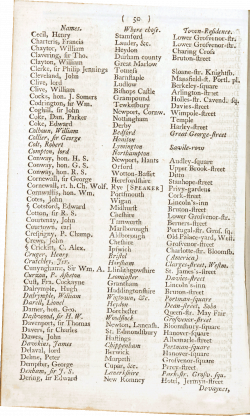 ( 50 )
Names. Where chose. Town-Residence.
Cecil, Henry Stamford Lower Grosvenor-str.
Charteris, Francis Lauder, &c. Lower Grosvenor-str.
Chaytor, William Heydon Charing Cross
Clavering, sir Tho. Durham county Bruton-street
Clayton, William Great Marlow
Clerke, sir Philip Jennings Totness Sloane-str. Knightsb.
Cleveland, John Barnstaple Mansfield-st. Portl. pl.
Clive, lord Ludlow Berkeley-square
Clive, William Bishops Castle Arlington-street
Cocks, hon. J. Somers Grampound Holles-str. Cavend. sq.
Codrington, sir Wm. Tewkesbury Davies-street
Coghill, sir John Newport, Cornw. Wimpole-street
Coke, Dan. Parker Nottingham Temple
Coke, Edward Derby Harley-street
Colhoun, William Bedford Great George-street
Collier, sir George Honiton
Colt, Robert Lymington Savile-row
Compton, lord Northampton
Conway, hon. H. S. Newport, Hants Audley-square
Conway, hon. G. S. Orford Upper Brook-street
Conway, hon. R. S. Wotton-Basset Ditto
Cornewall, sir George Herefordshire Stanhope-street
Cornewall, rt. h. Ch. Wolf. Rye [SPEAKER] Privy-gardens
Cornwallis, hon. Wm. Portsmouth
Cotes, John Wigan Lincoln's-inn
Cotsford, Edward Midhurst Bruton-street
Cotton, sir R. S. Cheshire Lower Grosvenor-str.
Courtenay, John Tamworth Berners-street
Courtown, earl Marlborough Portugal-str. Gros. sq.
Crespigny, P. Champ. Aldborough Old Palace-yard, West.
Crewe, John Cheshire Grosvenor-street
Crickitt, C. Alex. Ipswich Charlotte-str. Bloomsb.
Cruger, Henry Bristol (America)
Crutchley, Jer. Horsham Clarges-street, Westm.
Cunynghame, Sir Wm. A. Linlithgowshire St. James's-place
Cust, P. Ashetou Leominster Davies-street
Cust, Fra. Cockayne Grantham Lincoln's-inn
Dalrymple, Hugh Haddingtonshire Bruton-street
Dalrymple, William Wigtown, &c. Portman-square
Damer, hon. Geo. Dorchester Queen-str. May Fair
Davenport, sir Thomas Newton, Lancash. Bloomsbury-square
Davers, sir Charles St. Edmundsbury Hanover-square
Dawes, John Hastings Albemarle-street
Dawkins, James Chippenham Portman-square
Delaval, lord Berwick Hanover-square
Delme, Peter Morpeth Grosvenor-square
Dempster, George Cupar, &c. Percy-street
Dering, sir Edward New Romney Hotel, Jermyn-street